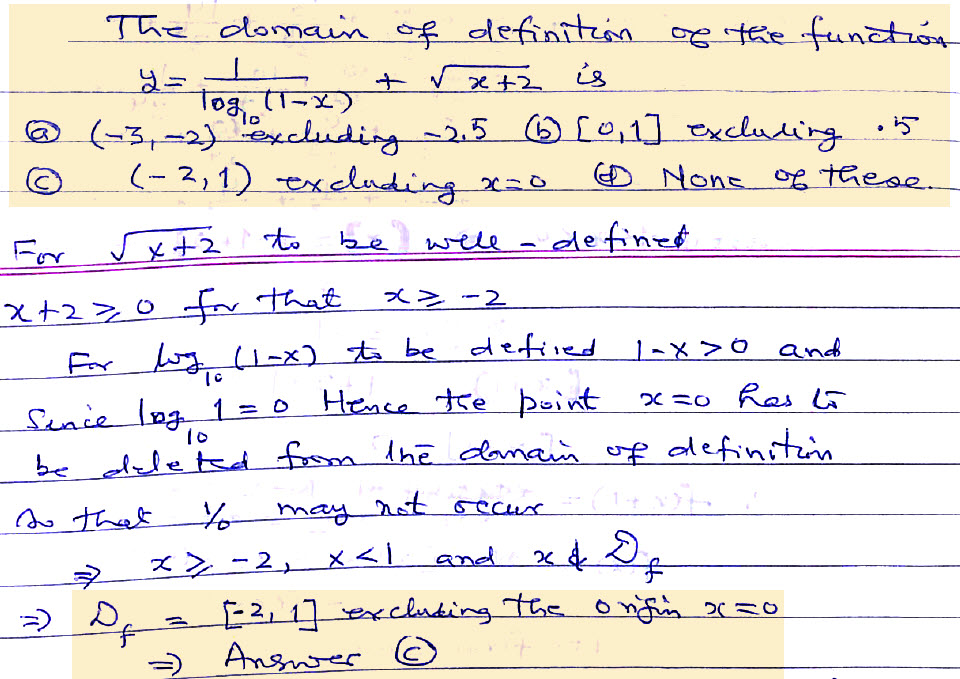 The domain of definition of the function
y = 1/log₁₀(1-x) + √(x+2) is
ⓐ (-3, -2) excluding -2.5 ⓑ [0,1] excluding .5
ⓒ (-2, 1) excluding x=0 ⓓ None of these.
For √(x+2) to be well-defined
x+2 ≥ 0 for that x ≥ -2
For log₁₀(1-x) to be defined 1-x>0 and
Since log₁₀ 1 = 0 Hence the point x=0 has to
be deleted from the domain of definition
so that 1/0 may not occur
⇒ x ≥ -2, x<1 and x ∉ D_f
⇒ D_f = [-2, 1] excluding the origin x=0
⇒ Answer ⓒ